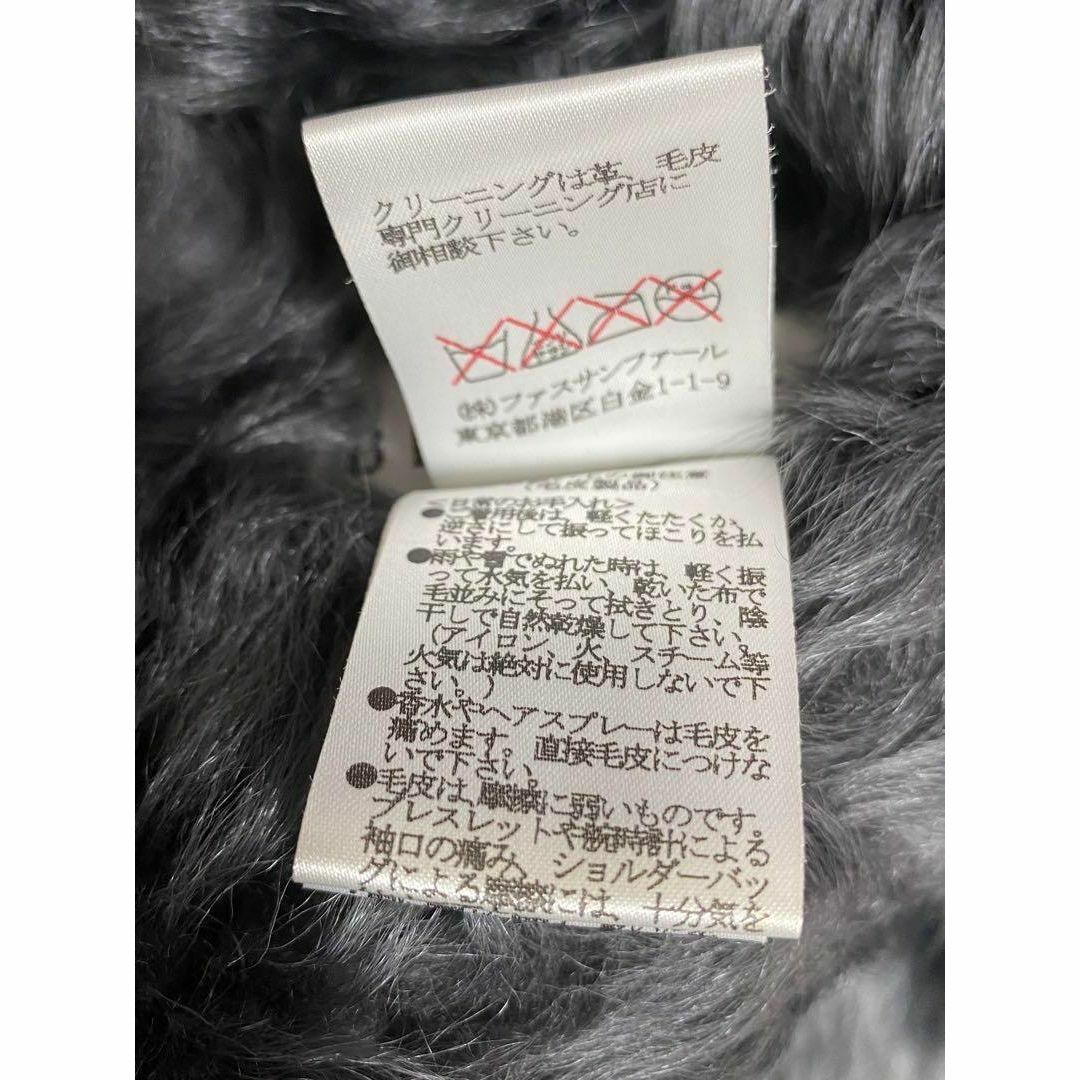 クリーニングは革、毛皮
専門クリーニング店に
御相談下さい。
㈱ファスサンファール
東京都港区白金1-1-9
(毛皮製品)
<日常のお手入れ>
●ご着用後は、軽くたたくか、
逆さにして振ってほこりを払
います。
●雨や雪でぬれた時は、軽く振
って水気を払い、乾いた布で
毛並みにそって拭きとり、陰
干しで自然乾燥して下さい。
(アイロン、火、スチーム等
火気は絶対に使用しないで下
さい。)
●香水やヘアスプレーは毛皮を
痛めます。直接毛皮につけな
いで下さい。
●毛皮は、摩擦に弱いものです。
ブレスレットや腕時計による
袖口の痛み、ショルダーバッ
グによる摩擦には、十分気を